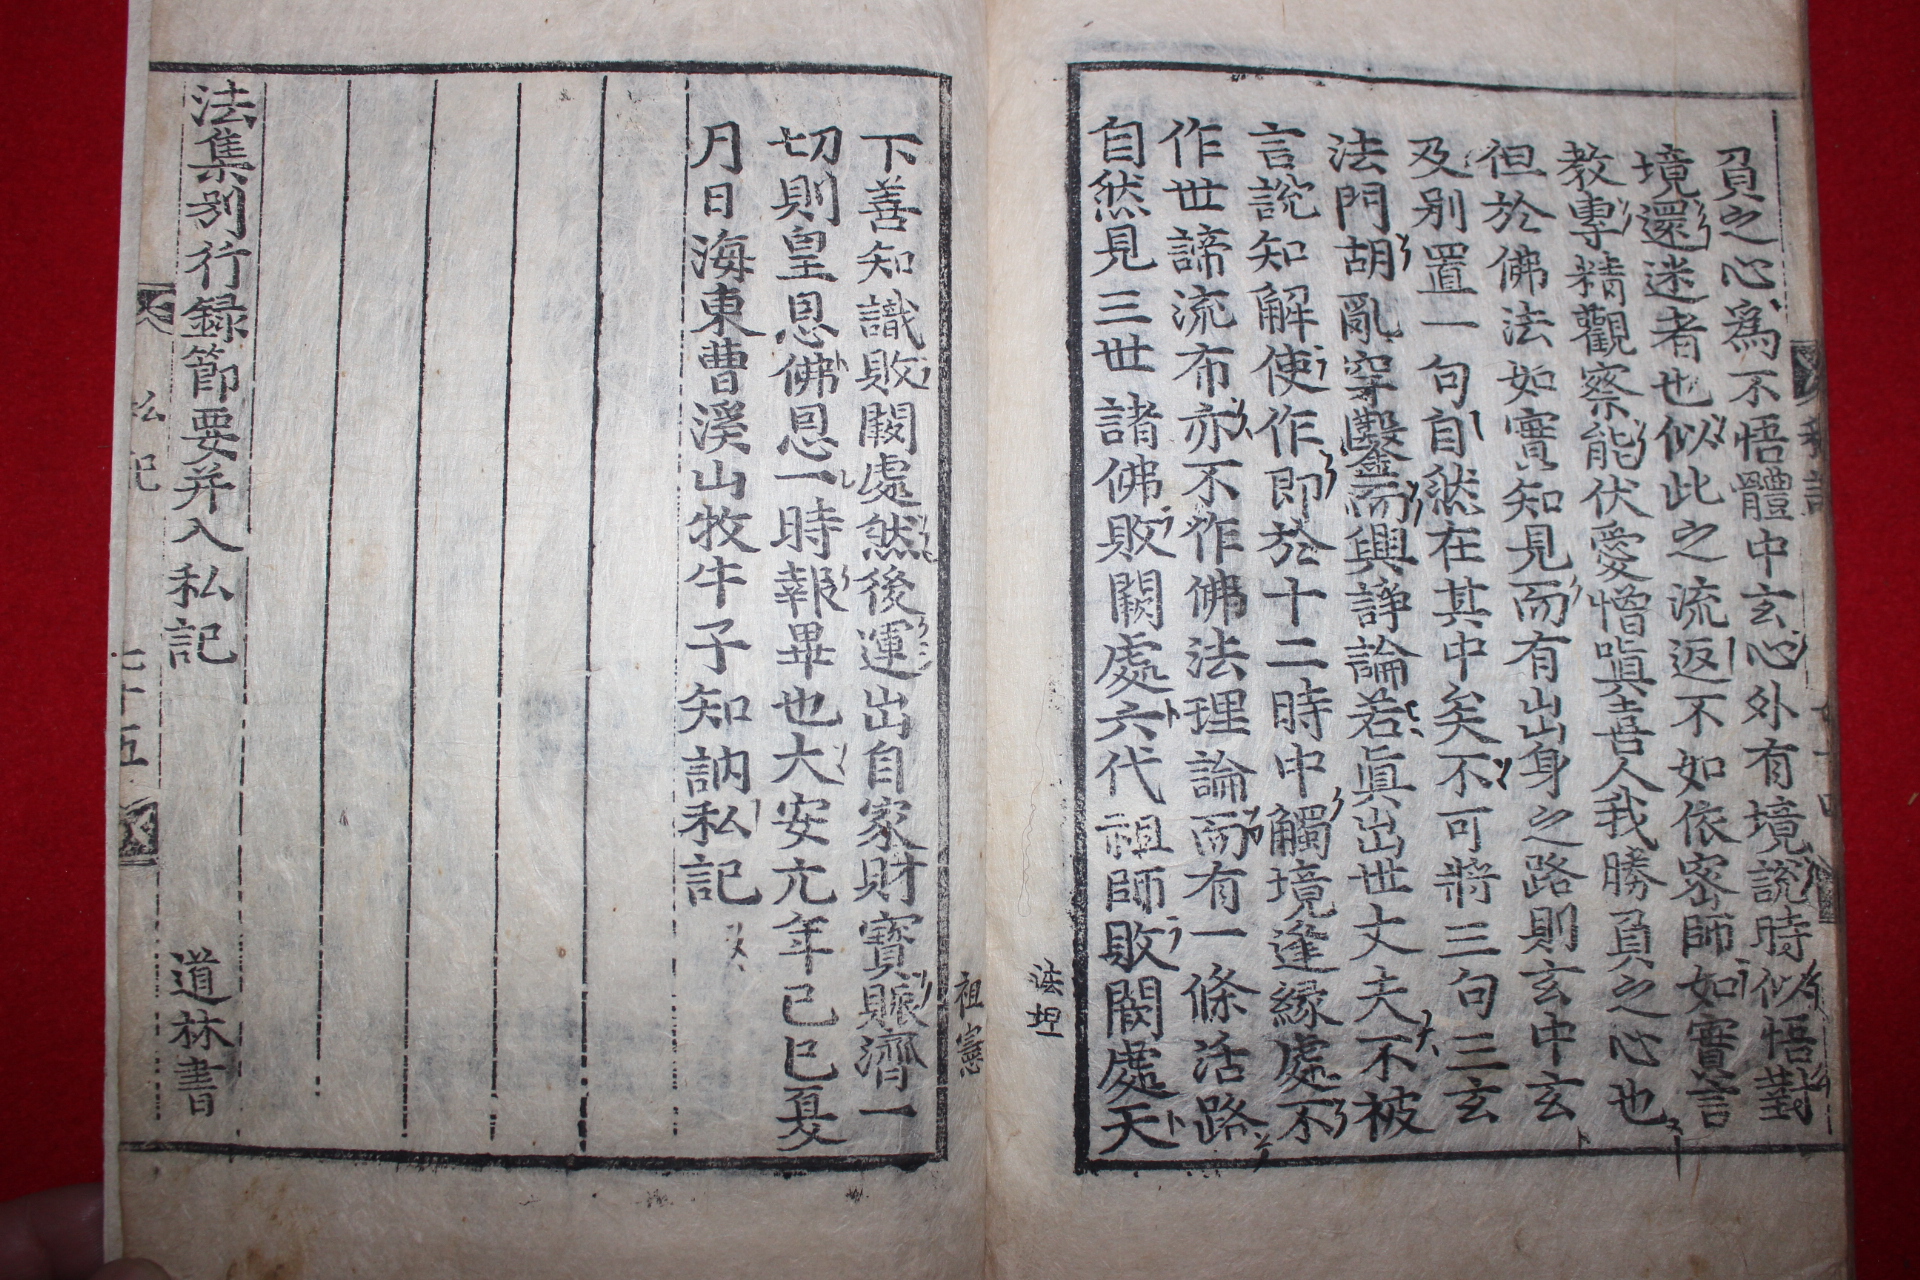 負之心爲不悟體中玄心外有境說時似悟對
境還迷者也似此之流返不如依密師如實言
教專精觀察能伏愛憎嗔喜人我勝負之心也
但於佛法如實知見而有出身之路則玄中玄
及別置一句自然在其中矣不可將三句三玄
法門胡亂穿鑿而興諍論若眞出世丈夫不被
言說知解使作即於十二時中觸境逢緣處不
作世諦流布亦不作佛法理論而有一條活路
自然見三世諸佛敗闕處六代祖師敗闕處天
法坦
祖憲
下善知識敗闕處然後運出自家財寶賑濟一
切則皇恩佛恩一時報畢也大安亢年己巳夏
月日海東曹溪山牧牛子知訥私記
法集別行録節要并入私記 道林書
私記 七十五